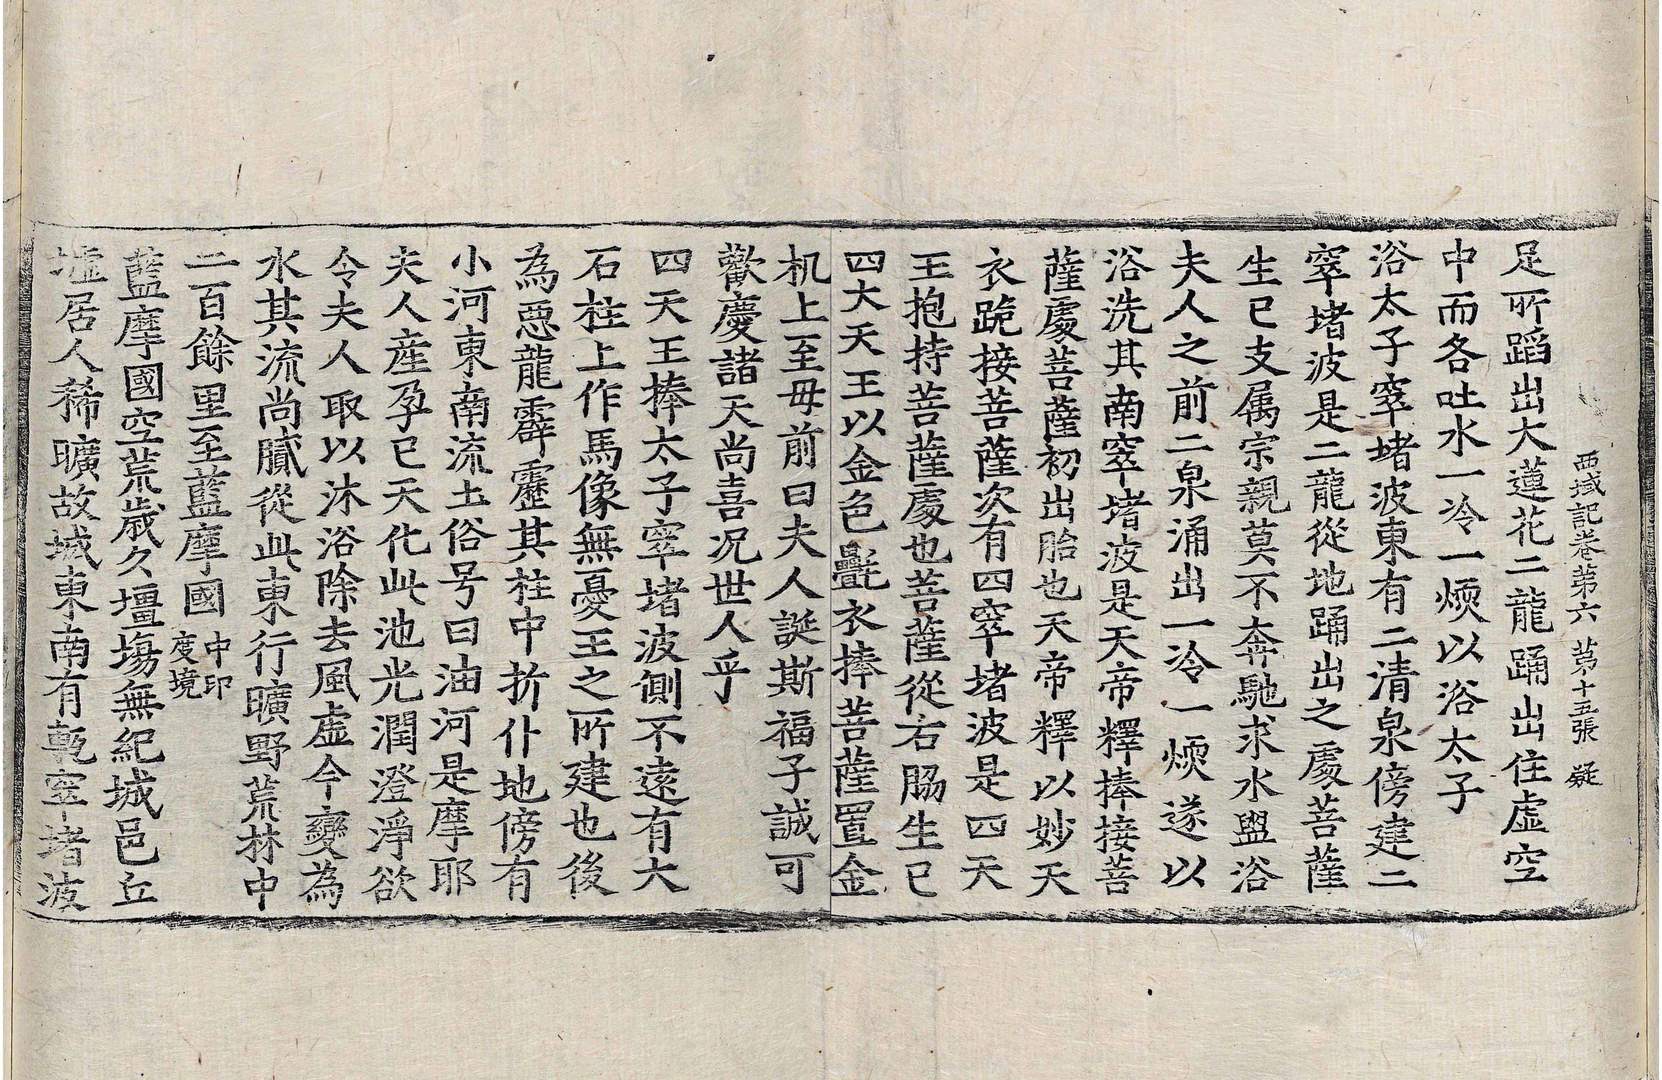 西域記卷第六 第十五張 疑
足所蹈出大蓮花二龍踊出住虛空
中而各吐水一冷一煗以浴太子
浴太子窣堵波東有二清泉傍建二
窣堵波是二龍從地踊出之處菩薩
生已支属宗親莫不奔馳求水盥浴
夫人之前二泉涌出一冷一煗遂以
浴洗其南窣堵波是天帝釋捧接菩
薩處菩薩初出胎也天帝釋以妙天
衣跪接菩薩次有四窣堵波是四天
王抱持菩薩處也菩薩從右脇生已
四大天王以金色㲲衣捧菩薩置金
机上至母前曰夫人誕斯福子誠可
歡慶諸天尚喜况世人乎
四天王捧太子窣堵波側不遠有大
石柱上作馬像無憂王之所建也後
為惡龍霹靂其柱中折仆地傍有
小河東南流土俗号曰油河是摩耶
夫人産孕已天化此池光潤澄淨欲
令夫人取以沐浴除去風虛今變為
水其流尚膩從此東行曠野荒林中
二百餘里至藍摩國中印度境
藍摩國空荒歲久壃場無紀城邑丘
墟居人稀曠故城東南有甎窣堵波